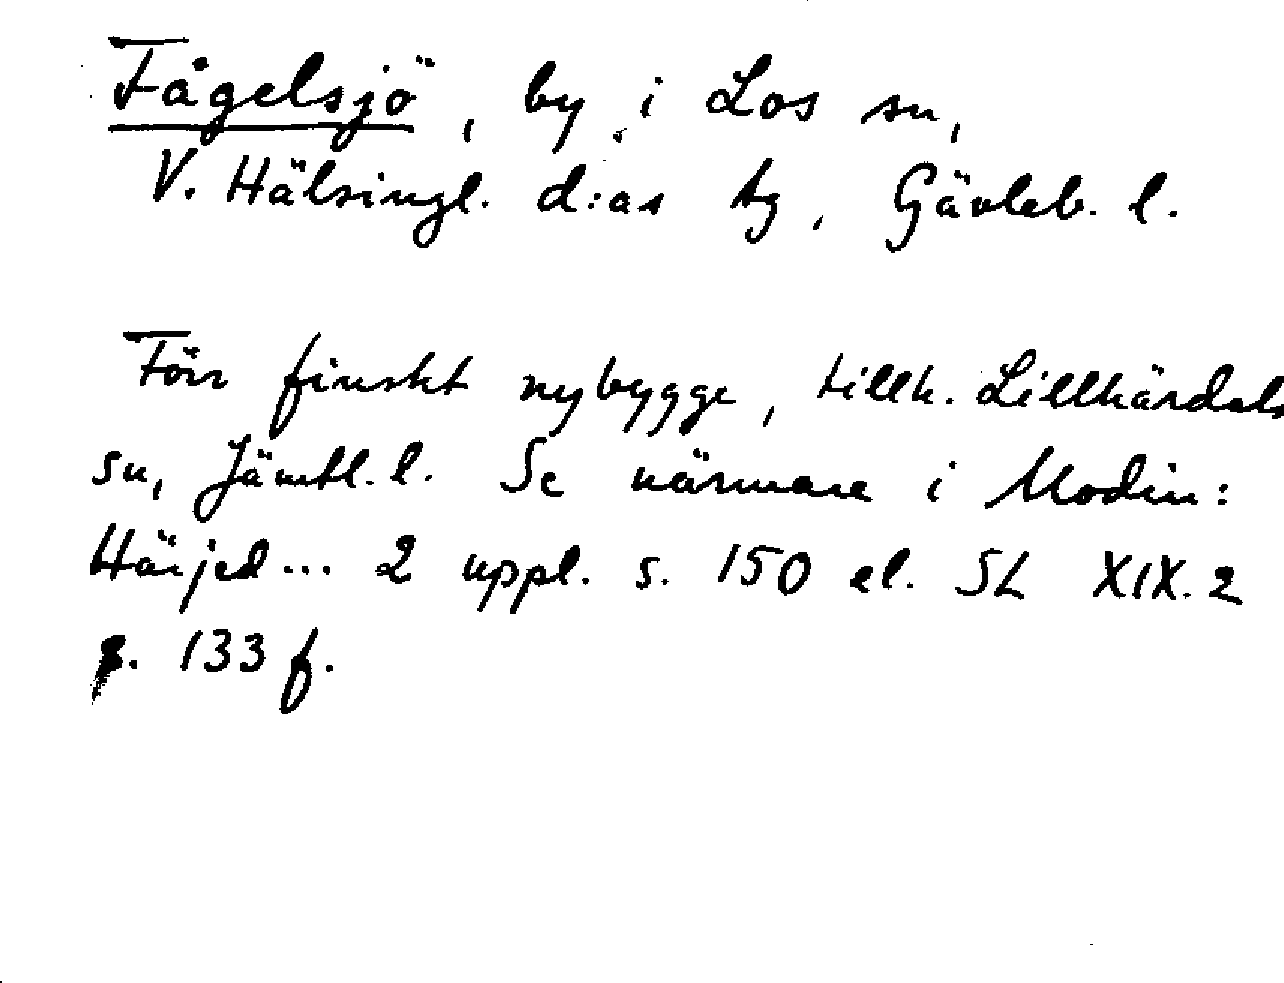 Fågelsjö, by i Los sn,
V. Hälsingl. d:as tg, Gävleb. l.
Förr finskt nybygge, tillh. Lillhärdals
sn, Jämtl. l. Se närmare i Modin:
Härjed... 2 uppl. s. 150 el. SL XIX. 2
s. 133 f.